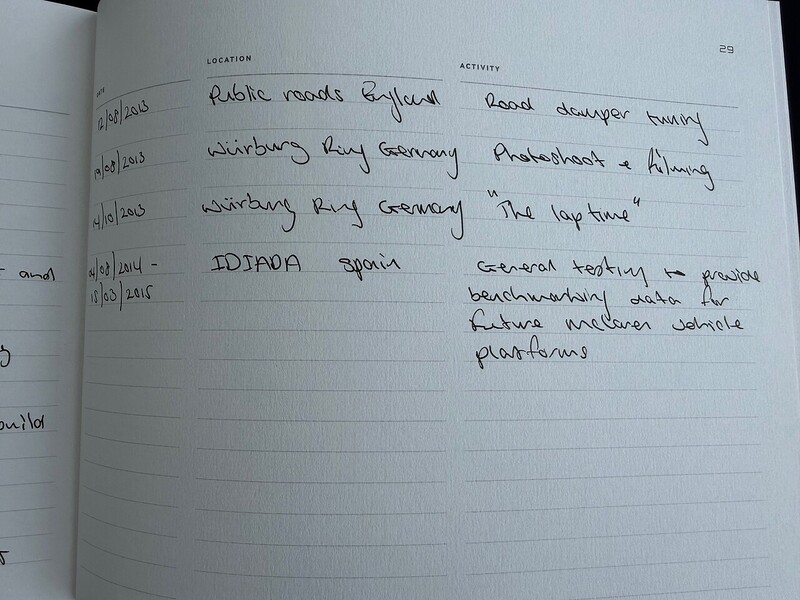 29
DATE LOCATION ACTIVITY
12/08/2013 Public roads England Road damper tuning
19/08/2013 Würburg Ring Germany Photoshoot + filming
14/10/2013 Würburg Ring Germany "The lap time"
04/08/2014 - IDIADA spain General testing to provide
and
15/03/2015 benchmarking data for
future mclaren vehicle
platforms
build